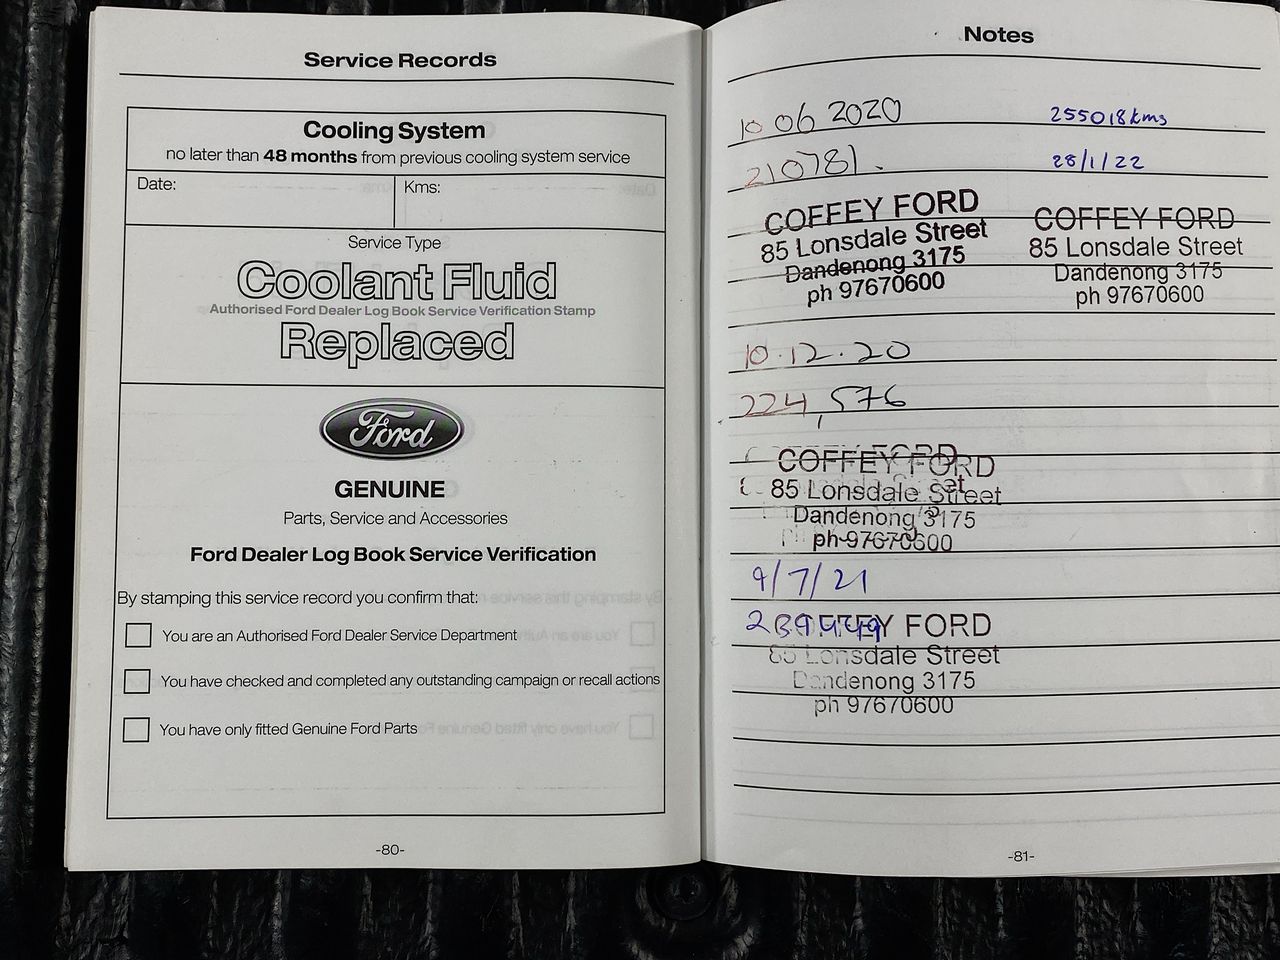 Service Records
Cooling System
no later than 48 months from previous cooling system service
Date:
Kms:
Service Type
Coolant Fluid
Authorised Ford Dealer Log Book Service Verification Stamp
Replaced
Ford
GENUINE
Parts, Service and Accessories
Ford Dealer Log Book Service Verification
By stamping this service record you confirm that:
You are an Authorised Ford Dealer Service Department
You have checked and completed any outstanding campaign or recall actions
You have only fitted Genuine Ford Parts
-80-
Notes
10 06 2020
210781.
COFFEY FORD
85 Lonsdale Street
Dandenong 3175
ph 97670600
255018kms
28/1/22
COFFEY FORD
85 Lonsdale Street
Dandenong 3175
ph 97670600
10.12.20
224,576
COFFEY FORD
85 Lonsdale Street
Dandenong 3175
ph 97670600
9/7/21
COFFEY FORD
85 Lonsdale Street
Dandenong 3175
ph 97670600
-81-